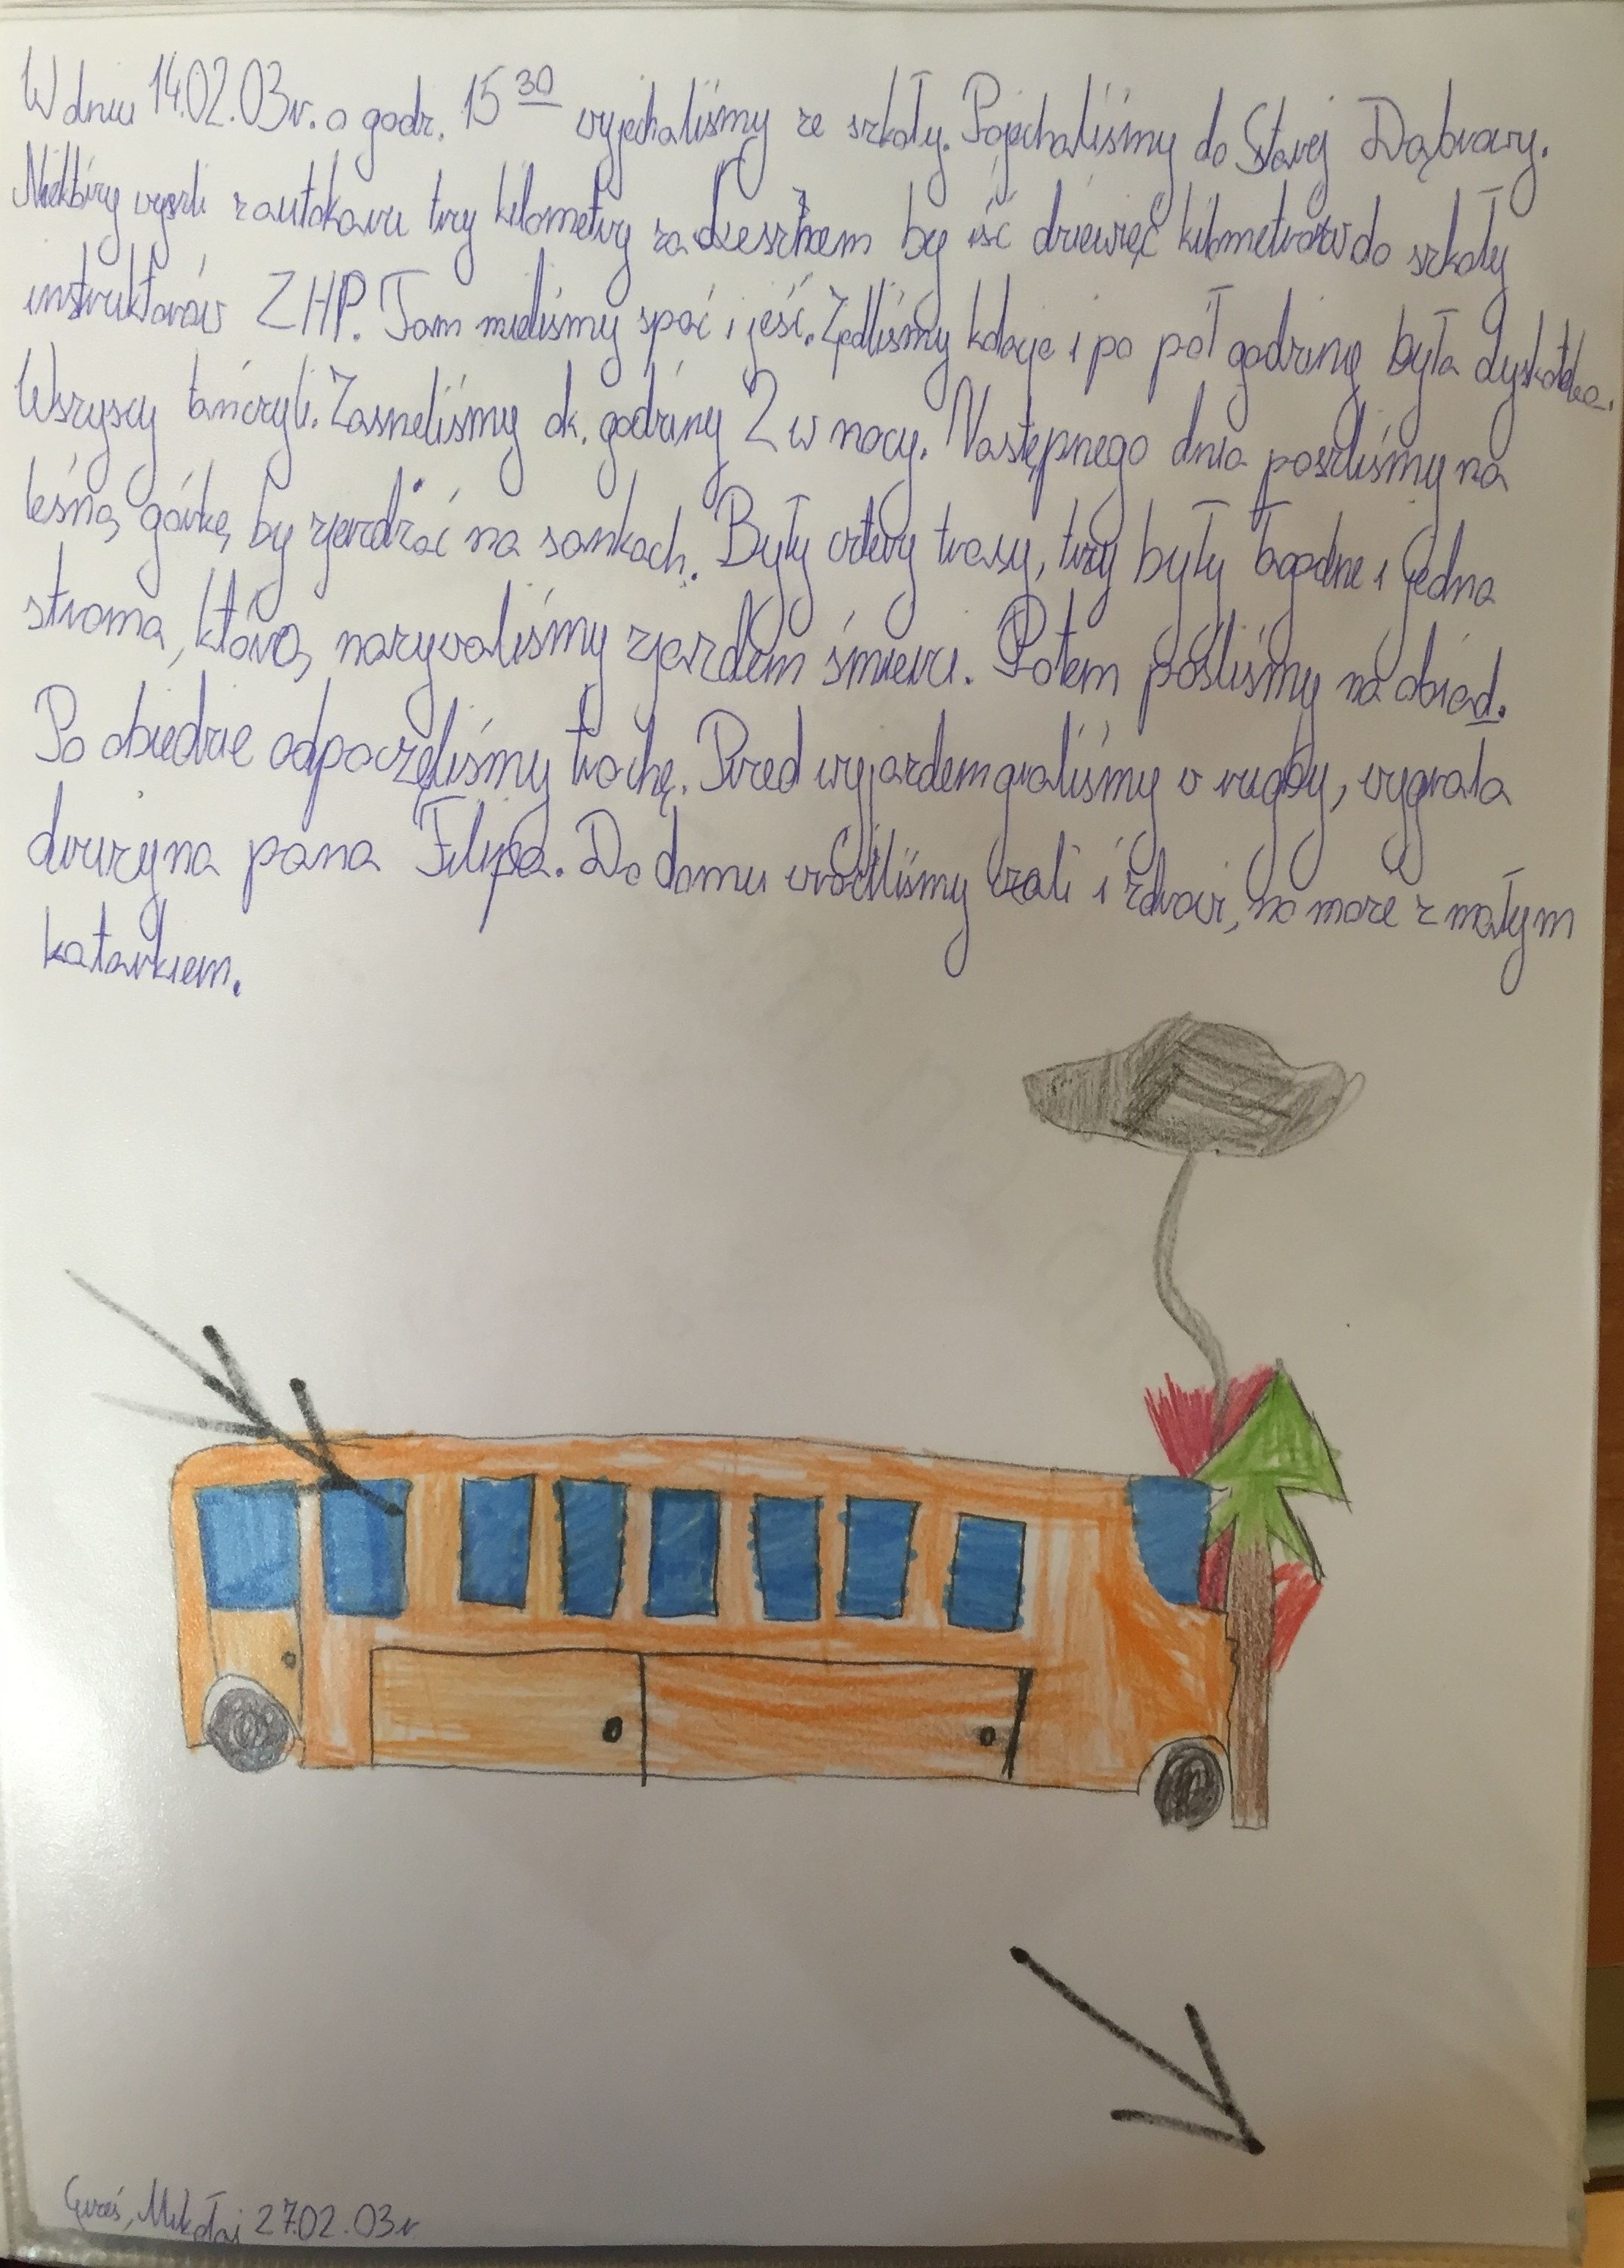 W dniu 14.02.03r. o godz. 15 30 wyjechaliśmy ze szkoły. Pojechaliśmy do Starej Dąbrowy.
wyszli z autokaru trzy kilometry za by iść dziewięć kilometrów do szkoły
instruktorów ZHP. Tam mieliśmy spać i jeść. Zjedliśmy kolacje i po pół godziny była dyskoteka.
Wszyscy tańczyli. Zasneliśmy ok. godziny 2 w nocy. Następnego dnia poszliśmy na
leśną górkę by zjerdżać na sankach. Były cztery trasy, trzy były łagodne i jedna
stroma, którą nazywaliśmy zjazdem śmierci. Potem pośliśmy na obiad.
Po obiedzie odpoczęliśmy trochę. Przed wyjazdem graliśmy w rugby, wygrała
drużyna pana Filipa. Do domu wróciliśmy cali i zdrowi, no może z małym
katarkiem.
Mikołaj 27.02.03r